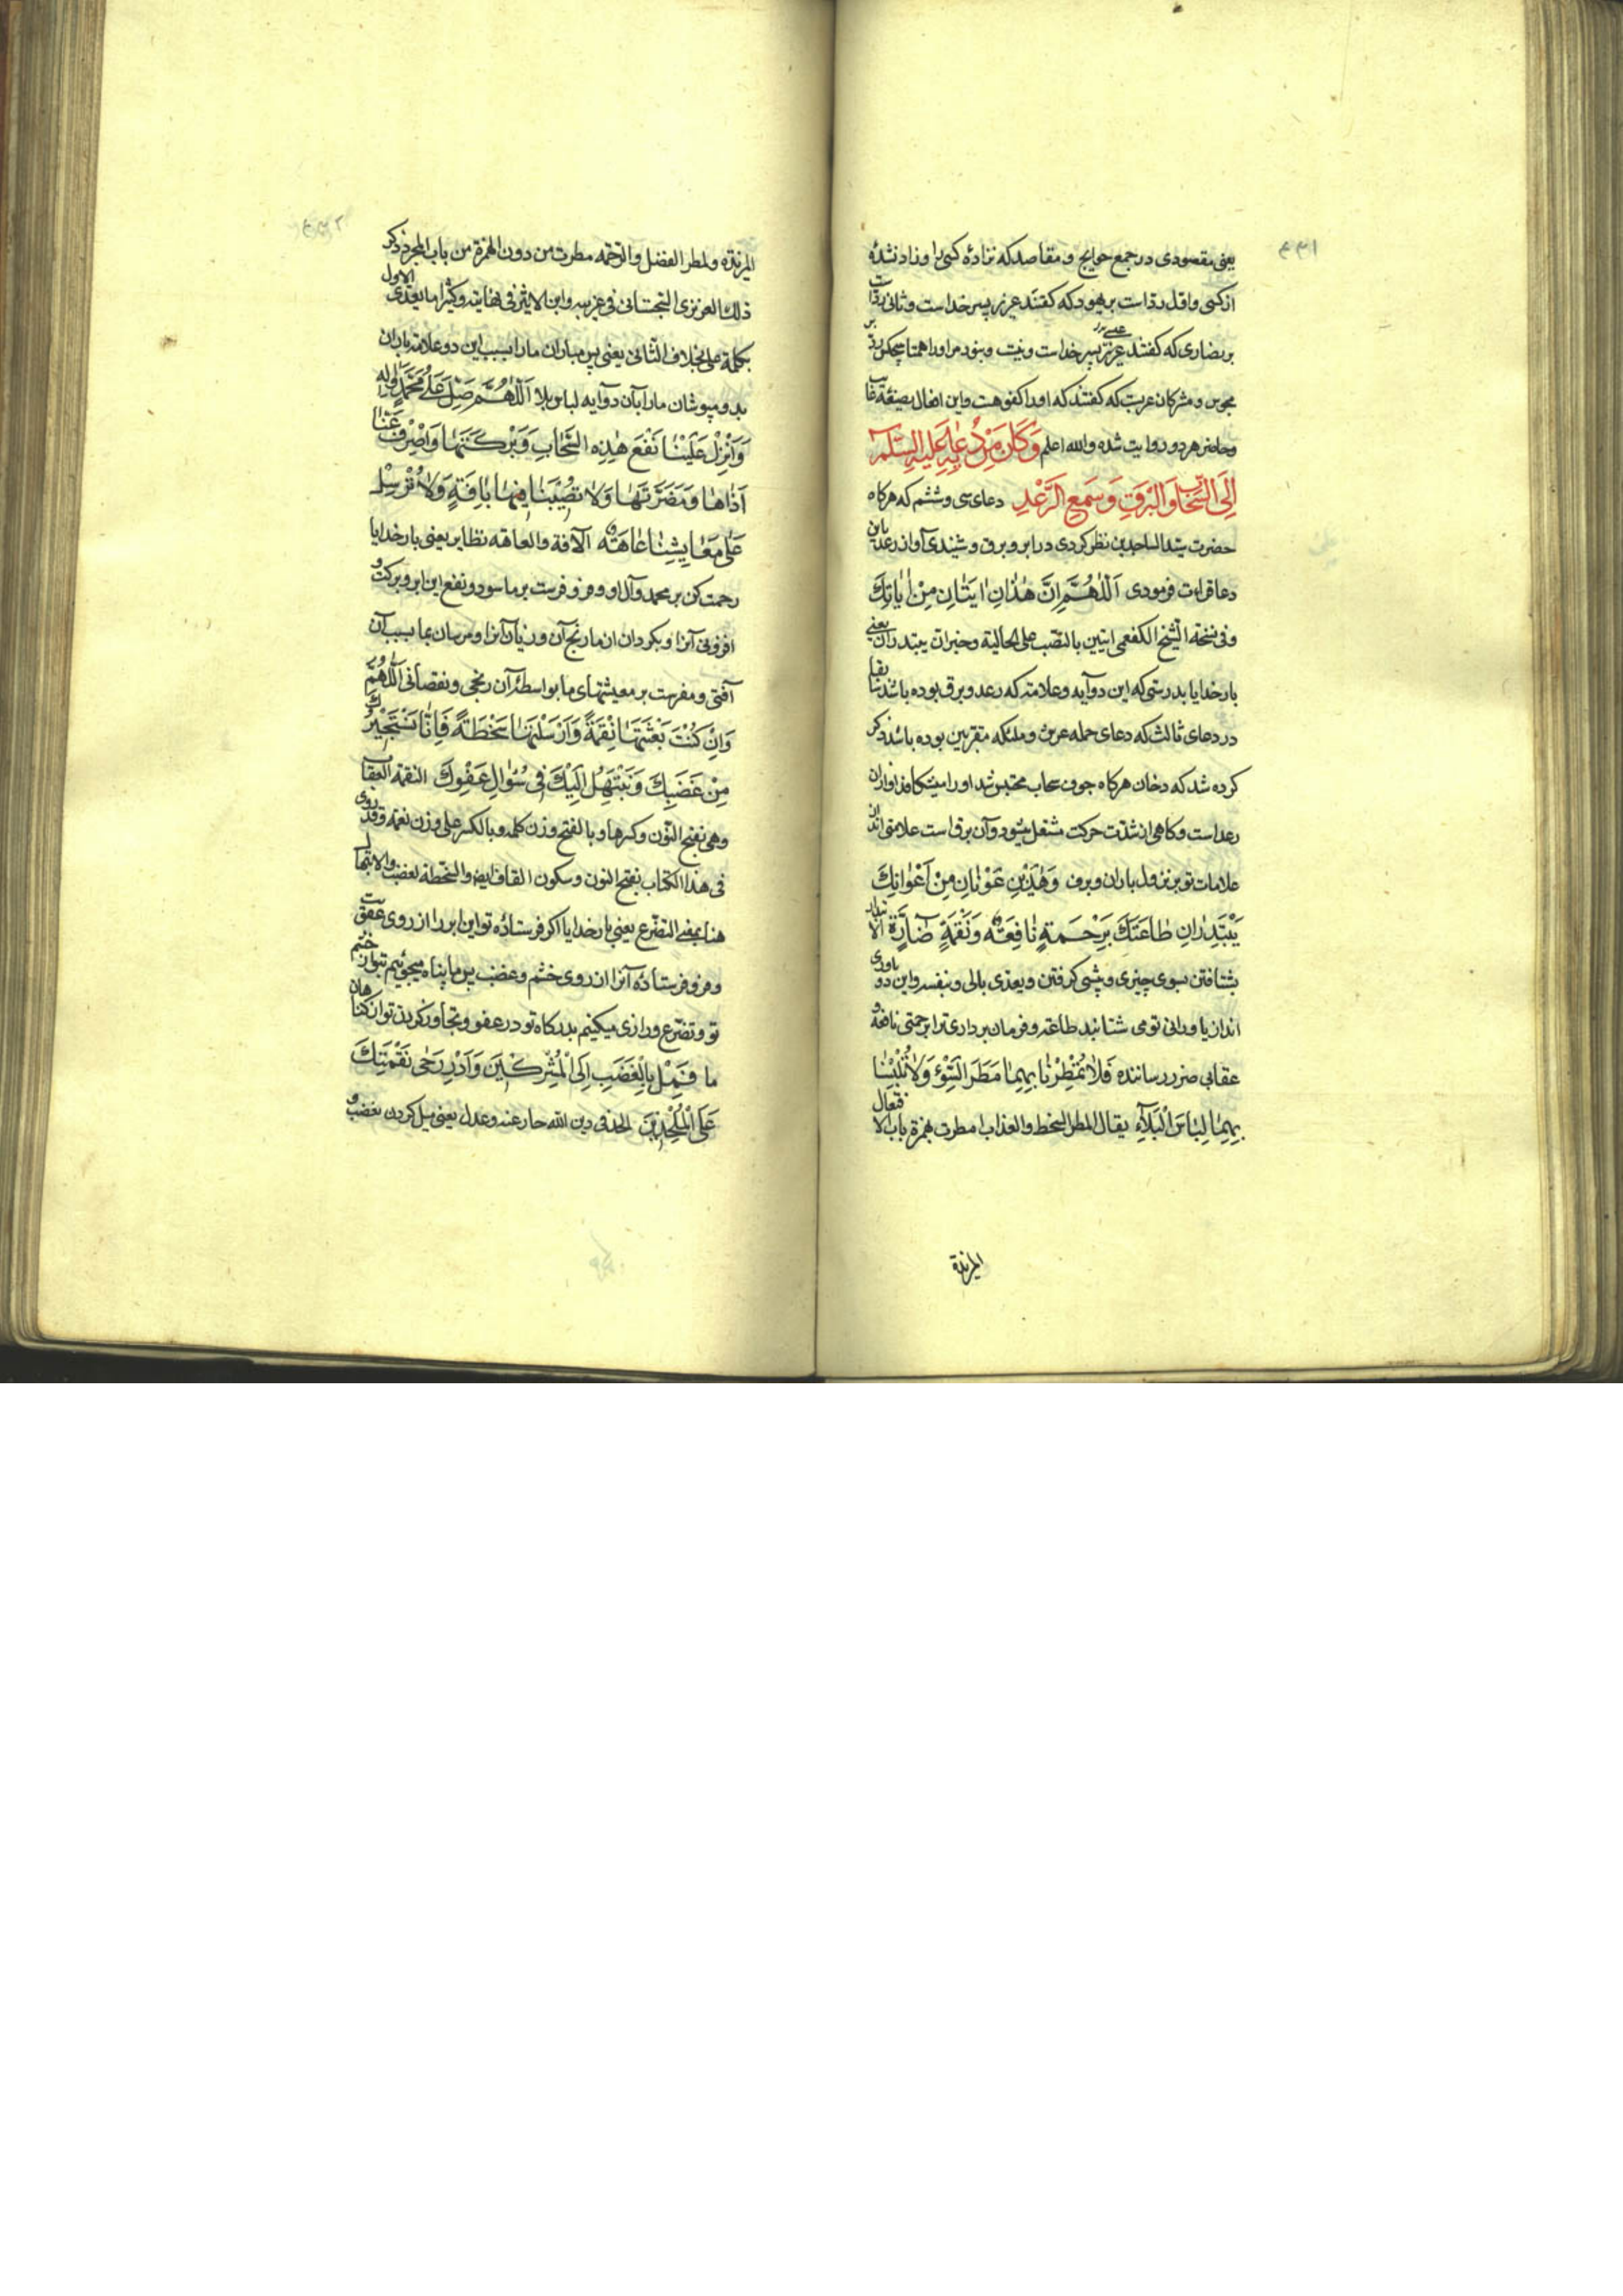 یعنی مقصودی در جمع حوایج و مقاصد که نزاده کسی را و زاد نشده
از کسی و اول رد است بر یهود که کفتند عزیر پسر خداست و ثانی رد است
بر نصاری که کفتند عیسی پسر خداست و نیست و نبود مر او را همتا هیچکس رد بر
مجوس و مشرکان عرب که کفتند که او را کفو هست و این افعال بصیغه غایب
و حاضر هر دو روایت شده والله اعلم وَكَانَ مِنْ دُعَائِهِ عَلَيْهِ السَّلَام
اِلَى السَّحَابِ وَالْبَرْقِ وَسَمِعَ الرَّعْدِ دعای سی و ششم که هرکاه
حضرت سید الساجدین نظر کردی در ابر و برق و شنیدی آواز رعد باین
دعا قراءت فرمودی اَللّٰهُمَّ اِنَّ هٰذَانِ اٰيَتَانِ مِنْ اٰيَاتِكَ
وفی نسخة الشیخ الکفعمی ایتین بالنصب علی الحالیة وخبر ان یبتدران یعنی
بار خدایا بدرستی که این دو آیه و علامت که رعد و برق بوده باشد
در دعای ثالث که دعای حمله عرش و ملئکه مقربین بوده باشد ذکر
کرده شد که دخان هرکاه جوف سحاب محتبس شد او را میشکافد آواز آن
رعد است و کاهی از شدت حرکت مشتعل میشود و آن برق است علامتی اند از
علامات تو بر نزول باران و برف وَهٰذَيْنِ عَوْنَانِ مِنْ اَعْوَانِكَ
يَبْتَدِرَانِ طَاعَتَكَ بِرَحْمَةٍ نَافِعَةٍ وَنَقْمَةٍ ضَارَّةٍ
بشتافتن بسوی چیزی و پیشی کرفتن و یعدی بالی و بنفسه و این دو یاوری
اند از یاورانی تو می شتابند طاعت و فرمان برداری ترا برحمتی نافعه و
عقابی ضرر رساننده فَلَا تُمْطِرْنَا بِهِمَا مَطَرَ السَّوْءِ وَلَا تُلْبِسْنَا
بِهِمَا لِبَاسَ الْبَلَاءِ یقال المطر السخط والعذاب امطرت بهمزة باب الافعال
المزیدة
المزیدة ولمطر الفضل والرحمة مطرت من دون الهمزة من باب المجرد ذکر
ذلك العزیزی السجستانی فی غریبه وابن الاثیر فی نهایته وکثیرا ما یعدی الاول
بکلمة علی بخلاف الثانی یعنی پس مباران ما را بسبب این دو علامت باران
بد و مپوشان ما را بآن دو آیه لباس بلا اَللّٰهُمَّ صَلِّ عَلٰى مُحَمَّدٍ وَاٰلِهِ
وَاَنْزِلْ عَلَيْنَا نَفْعَ هٰذِهِ السَّحَابِ وَبَرَكَتَهَا وَاصْرِفْ عَنَّا
اَذَاهَا وَمَضَرَّتَهَا وَلَا تُصِبْنَا فِيهَا بِاٰفَةٍ وَلَا تُرْسِلْ
عَلٰى مَعَايِشِنَا عَاهَةً الآفة والعاهة نظایر یعنی بار خدایا
رحمت کن بر محمد و آل او و فرو فرست بر ما سود و نفع این ابر و برکت و
افزونی آنرا و بکردان از ما رنج آن و زیان آنرا و مرسان بما بسبب آن
آفتی و مفرست بر معیشتهای ما بواسطه آن رنجی و نقصانی اَللّٰهُمَّ
وَاِنْ كُنْتَ بَعَثْتَهَا نِقْمَةً وَاَرْسَلْتَهَا سَخْطَةً فَاِنَّا نَسْتَجِيْرُكَ
مِنْ غَضَبِكَ وَنَبْتَهِلُ اِلَيْكَ فِي سُؤَالِ عَفْوِكَ النقمة العقاب
وهی بفتح النون وکسرها وبالفتح وزن کلمه وبالکسر علی وزن نعمة وقد روی
فی هذا الکتاب بفتح النون وسکون القاف ایضا والسخطة الغضب والابتهال
هنا بمعنی التضرع یعنی بار خدایا اکر فرستاده تو این ابر را از روی عقوبت
و فرو فرستاده آنرا از روی خشم و غضب پس ما پناه میجوئیم بتو از خشم
تو و تضرع و زاری میکنیم بدرکاه تو در عفو و تجاوز کردن تو از کناهان
ما فَمِلْ بِالْغَضَبِ اِلَى الْمُشْرِكِيْنَ وَاَدِرْ رَحٰى نَقْمَتِكَ
عَلَى الْمُلْحِدِيْنَ الحد فی دین الله حار عنه وعدل یعنی میل کردن بغضب و